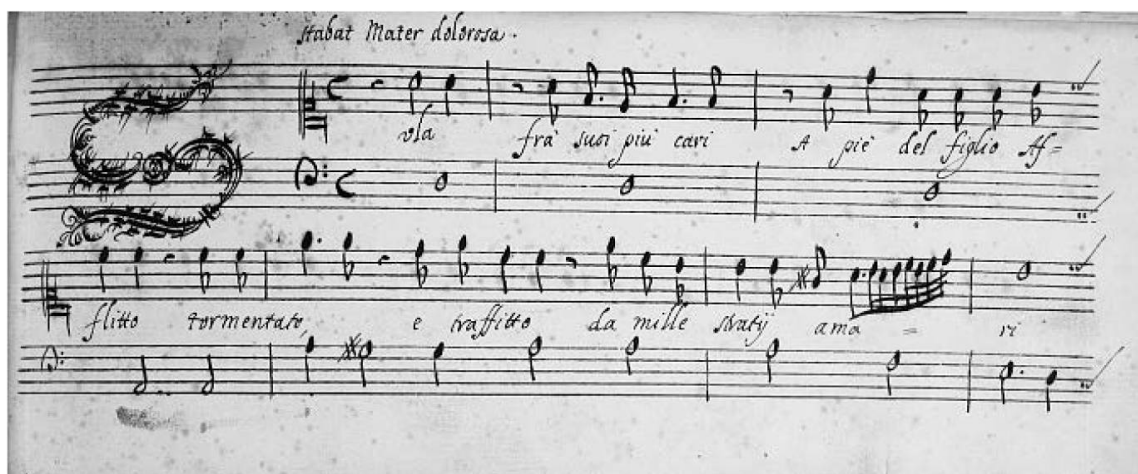 Stabat Mater dolorosa.
Sola frà suoi più cari A piè del figlio Af=
flitto tormentato, e traffitto da mille stratij ama = ri